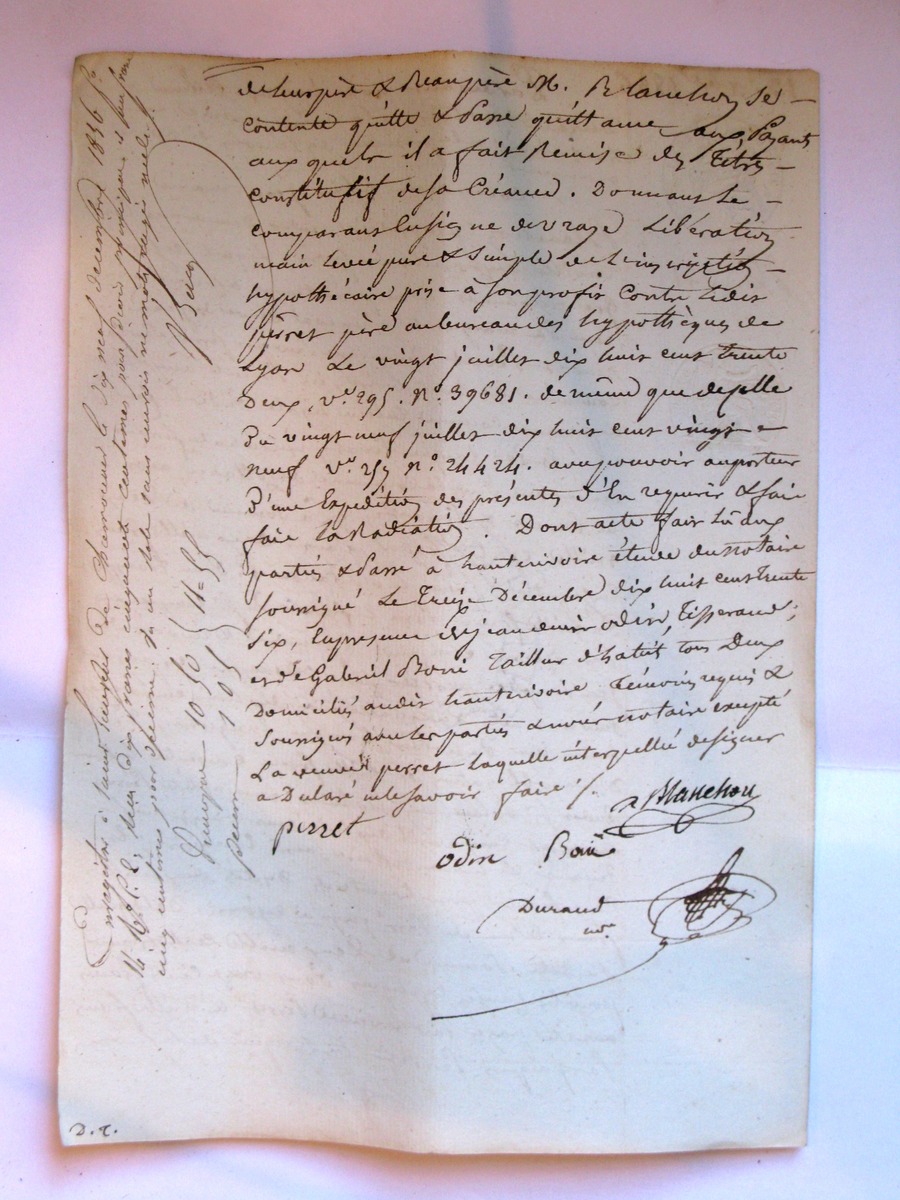 de leur père & Beaupère M. Blanchon se
contente quitte & Passe quittance aux Payants
aux quels il a fait Remise des Titres
constitutif de sa Créance. Donnant le
comparant lusigne de vraye Libération
main levée pure & Simple de l'inscription
hypothécaire prise à son profit contre ledit
perret père au bureau des hypothèques de
Lyon Le vingt juillet dix huit cent trente
Deux, vol. 295. No. 39681. de même que de celle
Du vingt neuf juillet dix huit cent vingt
neuf vol. 257 no. 24424. avec pouvoir au porteur
D'une Expédition des présentes d'En requérir & faire
faire la Radiation. Dont acte fait lu aux
parties & Passé à hauterivoire étude du notaire
soussigné Le Treize Décembre dix huit cent trente
six, En presence de jean odin, Tisserand,
et de Gabriel Borri Tailleur d'habits tous Deux
Domiciliés audit hauterivoire Témoins requis &
soussignés avec les parties & nous notaire excepté
La veuve perret laquelle interpellée de signer
a Déclaré ne le savoir faire /.
perret
Blanchon
odin Borri
Durand
nre
Enregistré à Saint Laurent de Chamousset le dix neuf décembre 1836 fo
14 Ro C. 2, reçu dix francs cinquante centimes pour
cinq centimes pour décime
Quittance 10 50
Décime 1 05
11=55
D. T.